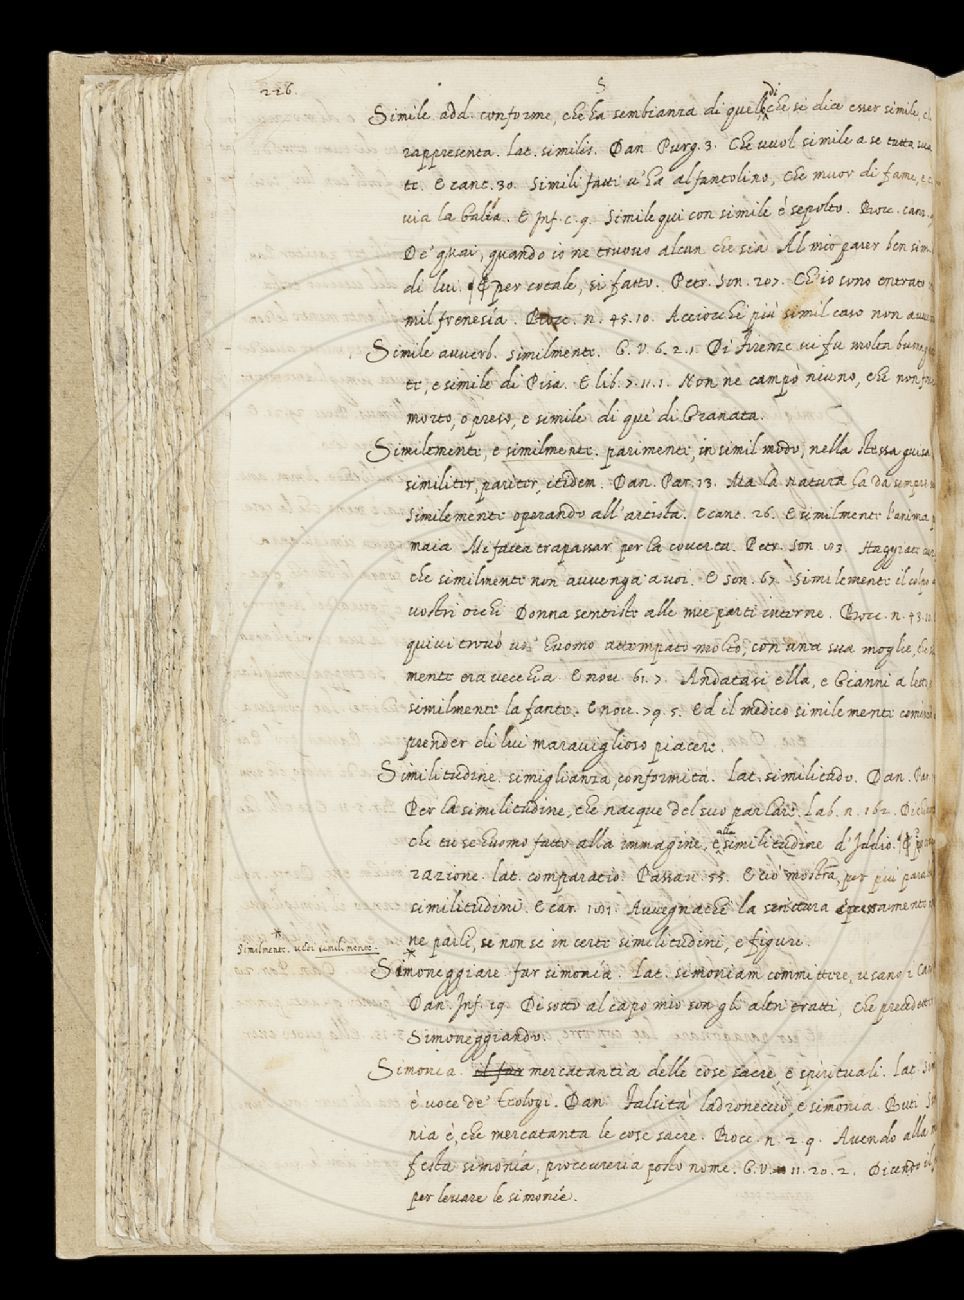 226. S
Simile add. conforme, che ha sembianza di quello di che si dice esser simile, e
rappresenta. Lat. similis. Dan. Purg. 3. Che vuol simile a se tutta sua
te. E cant. 30. Simili fatti v'ha al fantolino, che muor di fame, e
via la balia. E Inf. c. 9. Simile qui con simile è sepolto. Bocc. canz.
De' quai, quando io ne truovo alcun che sia Al mio piacer ben sim
di lui. ¶ E per cotale, sì fatto. Petr. Son. 207. Ch'io sono entrato
mil frenesía. Bocc. n. 45. 10. Acciocchè più simil caso non avve
Simile avverb. similmente. G. V. 6. 2. 1. Di Firenze vi fu molta buona
te, e simile di Pisa. E lib. 7. 11. 1. Non ne campò niuno, che non
morto, o preso, e simile di que' di Granata.
Similemente, e similmente. parimente, in simil modo, nella stessa guisa
similiter, pariter, itidem. Dan. Par. 13. Ma la natura la dà sempre
Similemente operando all'artista. E cant. 26. E similmente l'anima
maia Mi facea trapassar per la coverta. Petr. Son. 103
che similmente non avvenga a voi. E Son. 67. Similemente il colpo
vostri occhi Donna sentiste alle mie parti interne. Bocc. n. 43.
quivi trovò un' huomo attempato molto, con una sua moglie,
mente era vecchia. E nov. 61. 7. Andatasi ella, e Gianni a letto
similmente la fante. E nov. 79. 5. Ed il medico similemente cominciò
prender di lui maraviglioso piacere.
Similitudine. simiglianza, conformità. Lat. similitudo. Dan.
Per la similitudine, che nacque Del suo parlare. Lab. n. 162.
che tu se huomo fatto alla immagine, e alla similitudine d'Iddio. ¶
razione. lat. comparatio. Passav. 55. E ciò mostra, per più para
similitudini. E car. 101. Avvegnachè la scrittura spessamente
ne parli, se non se in certe similitudini, e figure.
Similmente. vedi similemente.
Simoneggiare far simonía. Lat. simoniam committere, usano i
Dan. Inf. 19. Di sotto al capo mio son gli altri tratti, Che precedet
Simoneggiando.
Simonia. il far mercatantia delle cose sacre, e spirituali. Lat.
è voce de' Teologi. Dan Falsità ladroneccio, e simonia. Buti
nia è, che mercatanta le cose sacre. Bocc. n. 2. 9. Avendo alla
festa simonía, procureria posto nome. G. V. 11. 20. 2. Dicendo
per levare le simoníe.